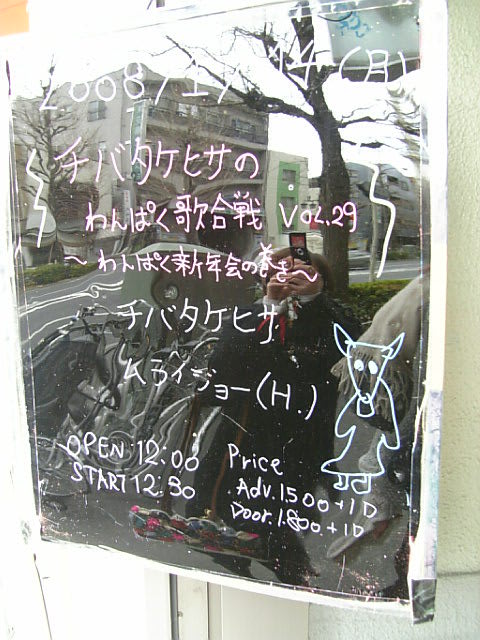 2008/1/14 (月)
チバタケヒサの
わんぱく歌合戦 VOL.29
～わんぱく新年会の巻き～
チバタケヒサ
ムライジョー(H.)
OPEN 12:00
START 12:30
Price
Adv.1.500+1D
Door.1.800+1D